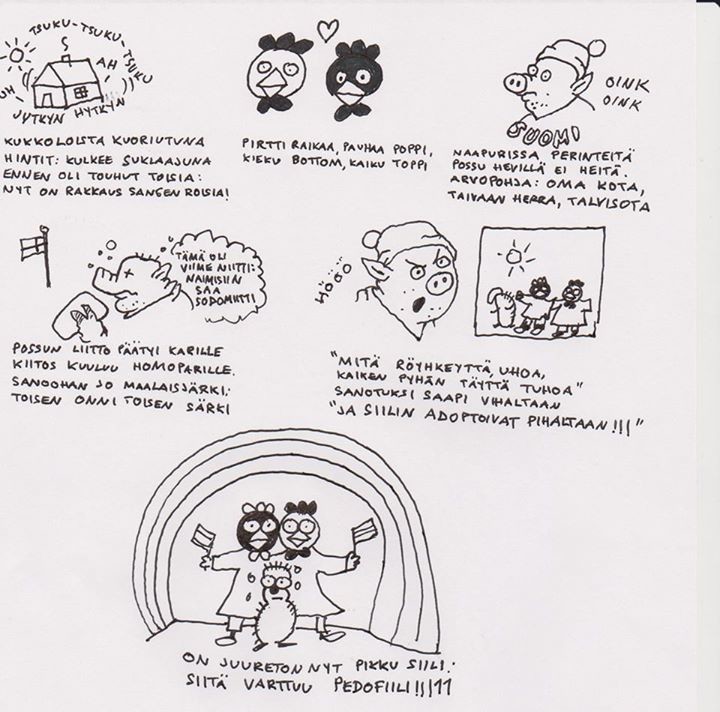 TSUKU-TSUKU-TSUKU
UH
AH
JYTKYN HYTKYN
KUKKOLOISTA KUORIUTUNA
HINTIT: KULKEE SUKLAAJUNA
ENNEN OLI TOUHUT TOISIA:
NYT ON RAKKAUS SANGEN ROISIA!
PIRTTI RAIKAA, PAUHAA POPPI,
KIEKU BOTTOM, KAIKU TOPPI
OINK
OINK
SUOMI
NAAPURISSA PERINTEITÄ
POSSU HEVILLÄ EI HEITÄ.
ARVOPOHJA: OMA KOTA,
TAIVAAN HERRA, TALVISOTA
TÄMÄ OLI
VIIME NIITTI:
NAIMISIIN
SAA
SODOMIITTI
POSSUN LIITTO PÄÄTYI KARILLE
KIITOS KUULUU HOMOPARILLE.
SANOOHAN JO MAALAISJÄRKI:
TOISEN ONNI TOISEN SÄRKI
HÖGÖ
"MITÄ RÖYHKEYTTÄ, UHOA,
KAIKEN PYHÄN TÄYTTÄ TUHOA"
SANOTUKSI SAAPI VIHALTAAN
"JA SIILIN ADOPTOIVAT PIHALTAAN!!!"
ON JUURETON NYT PIKKU SIILI:
SIITÄ VARTTUU PEDOFIILI!!!11